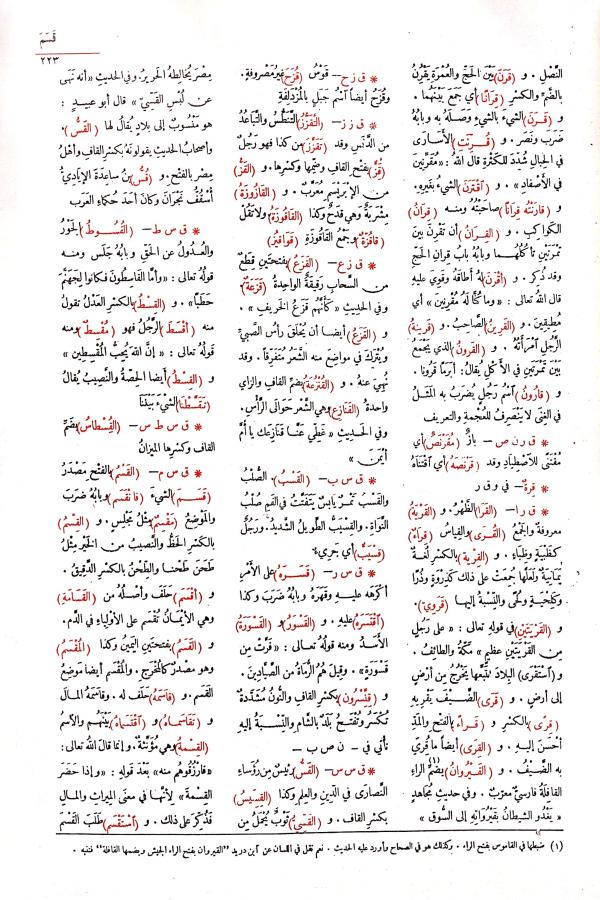 قسم
٢٢٣
النَّصْلِ . و (قَرَنَ) بَيْنَ الحَجِّ والعُمْرَةِ يَقْرُنُ
بالضَّمِّ والكَسْرِ (قِرَانًا) أي جَمَعَ بَيْنَهُمَا .
و (قَرَنَ) الشَّيْءَ بالشَّيْءِ وَصَلَهُ بِهِ وبابُهُ
ضَرَبَ ونَصَرَ . و (قُرِّنَتِ) الأُسَارَى
في الحِبَالِ شُدِّدَ لِلكَثْرَةِ قالَ اللهُ : «مُقَرَّنِينَ
في الأَصْفَادِ» . و (اقْتَرَنَ) الشَّيْءُ بِغَيْرِهِ .
و (قَارَنْتُهُ قِرَانًا) صَاحَبْتُهُ ومنه (قِرَانُ)
الكَوَاكِبِ . و (القِرَانُ) أن تَقْرُنَ بَيْنَ
تَمْرَتَيْنِ تَأْكُلُهُمَا وبابُهُ بابُ قِرَانِ الحَجِّ
وقد ذُكِرَ . و (أَقْرَنَ) لَهُ أَطَاقَهُ وقَوِيَ عليهِ
قالَ اللهُ تعالى : «وما كُنَّا لَهُ مُقْرِنِينَ» أي
مُطِيقِينَ . و (القَرِينُ) الصَّاحِبُ . و (قَرِينَةُ)
الرَّجُلِ امْرَأَتُهُ . و (القَرُونُ) الذي يَجْمَعُ
بَيْنَ تَمْرَتَيْنِ في الأَكْلِ يُقالُ : أَبَرَمًا قَرُونًا .
و (قَارُونُ) اسْمُ رَجُلٍ يُضْرَبُ بِهِ المَثَلُ
في الغِنَى لا يَنْصَرِفُ لِلعُجْمَةِ والتَّعْرِيفِ
* ق ر ن ص — بازٌ (مُقَرْنَصٌ) أي
مُقْتَنًى لِلاصْطِيَادِ وقد (قَرْنَصَهُ) أي اقْتَنَاهُ
* قِرَةٌ — في و ق ر
* ق ر ا — (القَرَا) الظَّهْرُ . و (القَرْيَةُ)
معروفةٌ والجَمْعُ (القُرَى) والقِيَاسُ (قِرَاءٌ)
كَظَبْيَةٍ وظِبَاءٍ . و (القِرْيَةُ) بالكَسْرِ لُغَةٌ
يَمَانِيَةٌ ولَعَلَّهَا جُمِعَتْ على ذلك كَذِرْوَةٍ وذُرًا
وكَلِحْيَةٍ ولُحًى والنِّسْبَةُ إليها (قَرَوِيٌّ) .
و (القَرْيَتَيْنِ) في قوله تعالى : «على رَجُلٍ
مِنَ القَرْيَتَيْنِ عظيمٍ» مَكَّةُ والطَّائِفُ .
و (اسْتَقْرَى) البِلادَ تَتَبَّعَها يَخْرُجُ مِنْ أَرْضٍ
إلى أَرْضٍ . و (قَرَى) الضَّيْفَ يَقْرِيهِ
(قِرًى) بالكَسْرِ و (قَرَاءً) بالفَتْحِ والمَدِّ
أَحْسَنَ إليهِ . و (القِرَى) أيضًا ما قُرِيَ
به الضَّيْفُ . و (القَيْرُوَانُ) بِضَمِّ الراءِ
القَافِلَةُ فارسيٌّ مُعَرَّبٌ . و في حديثِ مُجَاهِدٍ
«يَغْدُو الشيطانُ بِقَيْرَوَانِهِ إلى السُّوقِ»
* ق ز ح — قَوْسُ (قُزَحَ) غيرُ مَصْرُوفَةٍ .
وقُزَحُ أيضًا اسْمُ جَبَلٍ بالمُزْدَلِفَةِ
* ق ز ز — (التَّقَزُّزُ) التَّنَطُّسُ والتَّبَاعُدُ
من الدَّنَسِ وقد (تَقَزَّزَ) من كذا فهو رَجُلٌ
(قَزٌّ) بفتحِ القافِ وضَمِّها وكَسْرِها . و (القَزُّ)
مِنَ الإِبْرَيْسَمِ مُعَرَّبٌ . و (القَازُوزَةُ)
مَشْرَبَةٌ وهي قَدَحٌ وكذا (القَاقُوزَةُ) ولا تَقُلْ
(قاقُزَّةٌ) وجَمْعُ القَاقُوزَةِ (قَوَاقِيزُ)
* ق ز ع — (القَزَعُ) بفَتْحَتَيْنِ قِطَعٌ
من السَّحَابِ رَقِيقَةٌ الواحِدَةُ (قَزَعَةٌ) .
وفي الحديثِ «كَأَنَّهُمْ قَزَعُ الخَرِيفِ» .
و (القَزَعُ) أيضًا أن يُحْلَقَ رَأْسُ الصَّبِيِّ
ويُتْرَكَ في مَوَاضِعَ منه الشَّعْرُ مُتَفَرِّقًا . وقد
نُهِيَ عَنْهُ . و (القُنْزُعَةُ) بِضَمِّ القافِ والزاي
واحدةُ (القَنَازِعِ) وهي الشَّعْرُ حَوَالَى الرَّأْسِ .
وفي الحديثِ «غَطِّي عَنَّا قَنَازِعَكِ يا أُمَّ
أَيْمَنَ»
* ق س ب — (القَسْبُ) . الصُّلْبُ
والقَسْبُ تَمْرٌ يابِسٌ يَتَفَتَّتُ في الفَمِ صُلْبُ
النَّوَاةِ . والقَسِيبُ الطَّوِيلُ الشَّدِيدُ . ورَجُلٌ
(قَسِيبٌ) أي جريءٌ
* ق س ر — (قَسَرَهُ) على الأَمْرِ
أَكْرَهَهُ عليهِ وقَهَرَهُ وبابُهُ ضَرَبَ وكذا
(اقْتَسَرَهُ) عليهِ . و (القَسْوَرُ) و (القَسْوَرَةُ)
الأَسَدُ ومنه قولُهُ تعالى : «فَرَّتْ مِنْ
قَسْوَرَةٍ» . وقيلَ هُمُ الرُّمَاةُ من الصَّيَّادِينَ .
و (قِنَّسْرُونَ) بكسرِ القافِ والنُّونُ مُشَدَّدَةٌ
تُكْسَرُ وتُفْتَحُ بَلَدٌ بالشَّامِ والنِّسْبَةُ إليهِ
تأتي في — ن ص ب —
* ق س س — (القَسُّ) رَئِيسٌ من رُؤَسَاءِ
النَّصَارَى في الدِّينِ والعِلْمِ وكذا (القِسِّيسُ)
بكسرِ القاف . و (القَسِّيُّ) ثَوْبٌ يُحْمَلُ مِنْ
مِصْرَ يُخَالِطُهُ الحَرِيرُ . وفي الحديثِ «أَنَّهُ نَهَى
عن لُبْسِ القَسِّيِّ» قالَ أبو عبيدٍ :
هو مَنْسُوبٌ إلى بلادٍ يُقالُ لها (القَسُّ) .
وأصحابُ الحديثِ يقولونَهُ بكَسْرِ القافِ وأَهْلُ
مِصْرَ بالفَتْحِ . و (قُسُّ) بنُ سَاعِدَةَ الإِيَادِيُّ
أُسْقُفُّ نَجْرَانَ وكانَ أَحَدَ حُكَمَاءِ العَرَبِ
* ق س ط — (القُسُوطُ) الجَوْرُ
والعُدُولُ عن الحَقِّ وبابُهُ جَلَسَ ومنه
قولُهُ تعالى : «وأَمَّا القَاسِطُونَ فَكَانُوا لِجَهَنَّمَ
حَطَبًا» . و (القِسْطُ) بالكَسْرِ العَدْلُ تقولُ
منه (أَقْسَطَ) الرَّجُلُ فهو (مُقْسِطٌ) ومنه
قولُهُ تعالى : «إنَّ اللهَ يُحِبُّ المُقْسِطِينَ»
و (القِسْطُ) أيضا الحِصَّةُ والنَّصِيبُ يُقالُ
(تَقَسَّطْنَا) الشَّيْءَ بَيْنَنَا
* ق س ط س — (القُسْطَاسُ) بِضَمِّ
القافِ وكَسْرِها المِيزَانُ
* ق س م — (القَسْمُ) بالفَتْحِ مَصْدَرُ
(قَسَمَ) الشَّيْءَ (فانْقَسَمَ) وبابُهُ ضَرَبَ
والمَوْضِعُ (مَقْسِمٌ) مِثْلُ مَجْلِسٍ . و (القِسْمُ)
بالكَسْرِ الحَظُّ والنَّصِيبُ من الخَيْرِ مِثْلُ
طَحَنَ طَحْنًا والطِّحْنُ بالكَسْرِ الدَّقِيقُ .
و (أَقْسَمَ) حَلَفَ وأَصْلُهُ من (القَسَامَةِ)
وهي الأَيْمَانُ تُقْسَمُ على الأَوْلِيَاءِ في الدَّمِ .
و (القَسَمُ) بفَتْحَتَيْنِ اليَمِينُ وكذا (المُقْسَمُ)
وهو مَصْدَرٌ كالمُخْرَجِ . والمُقْسَمُ أيضًا موضعُ
القَسَمِ . و (قاسَمَهُ) حَلَفَ له . وقاسَمَهُ المالَ
و (تَقَاسَمَاهُ) و (اقْتَسَمَاهُ) بَيْنَهُم والاسْمُ
(القِسْمَةُ) وهي مُؤَنَّثَةٌ . وإنما قالَ اللهُ تعالى :
«فارْزُقُوهُمْ منه» بَعْدَ قولِهِ : «وإذا حَضَرَ
القِسْمَةَ» لأنَّها في معنَى المِيراثِ والمَالِ
فذُكِّرَ على ذلك . و (اسْتَقْسَمَ) طَلَبَ القَسْمَ
(١) ضبطها في القاموس بفتح الراء . وكذلك هو في الصحاح وأورد عليه الحديث . نعم نقل في اللسان عن ابن دريد "القيروان بفتح الراء الجيش وبضمها القافلة" فتنبه .